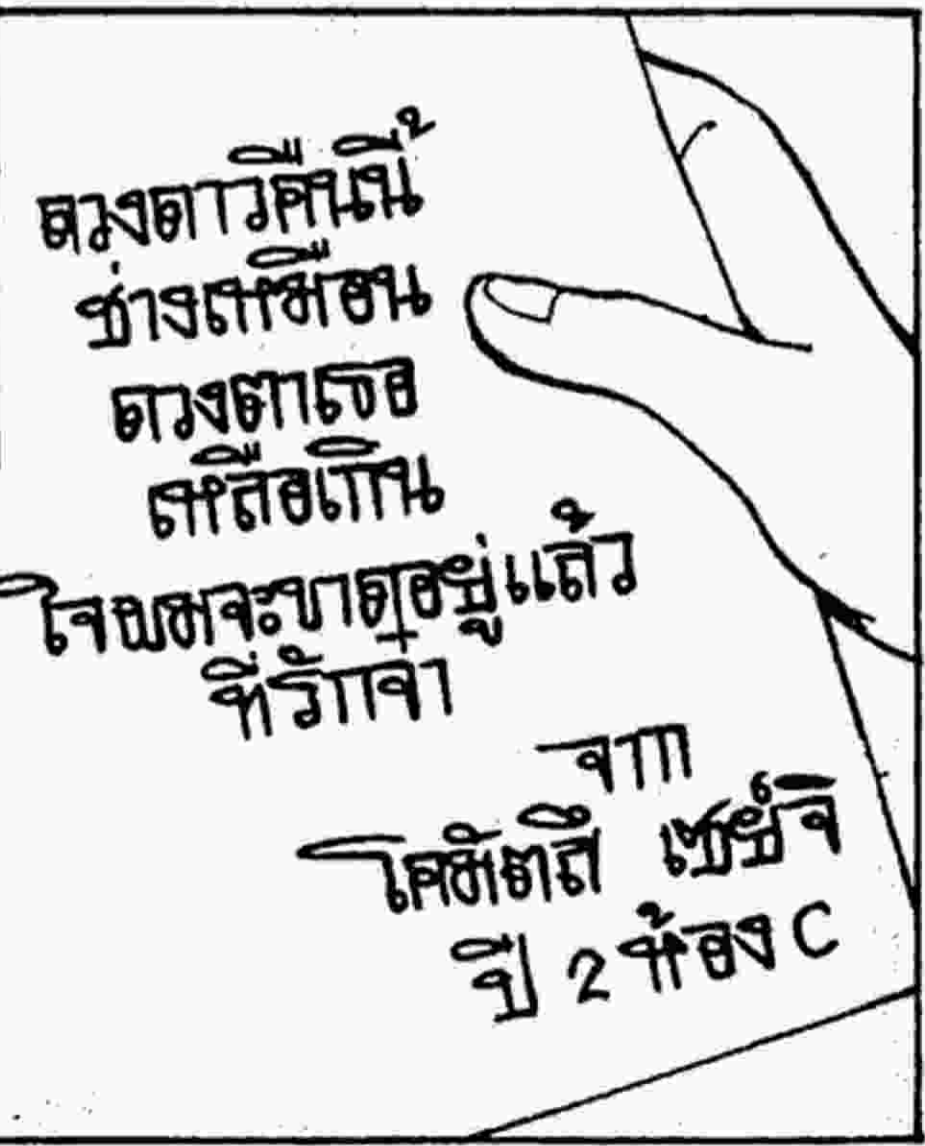 ดวงดาวคืนนี้
ช่างเหมือน
ดวงตาเธอ
เหลือเกิน
ใจผมจะขาดอยู่แล้ว
ที่รักจ๋า
จาก
เซย์จิ
ปี 2 ห้อง C